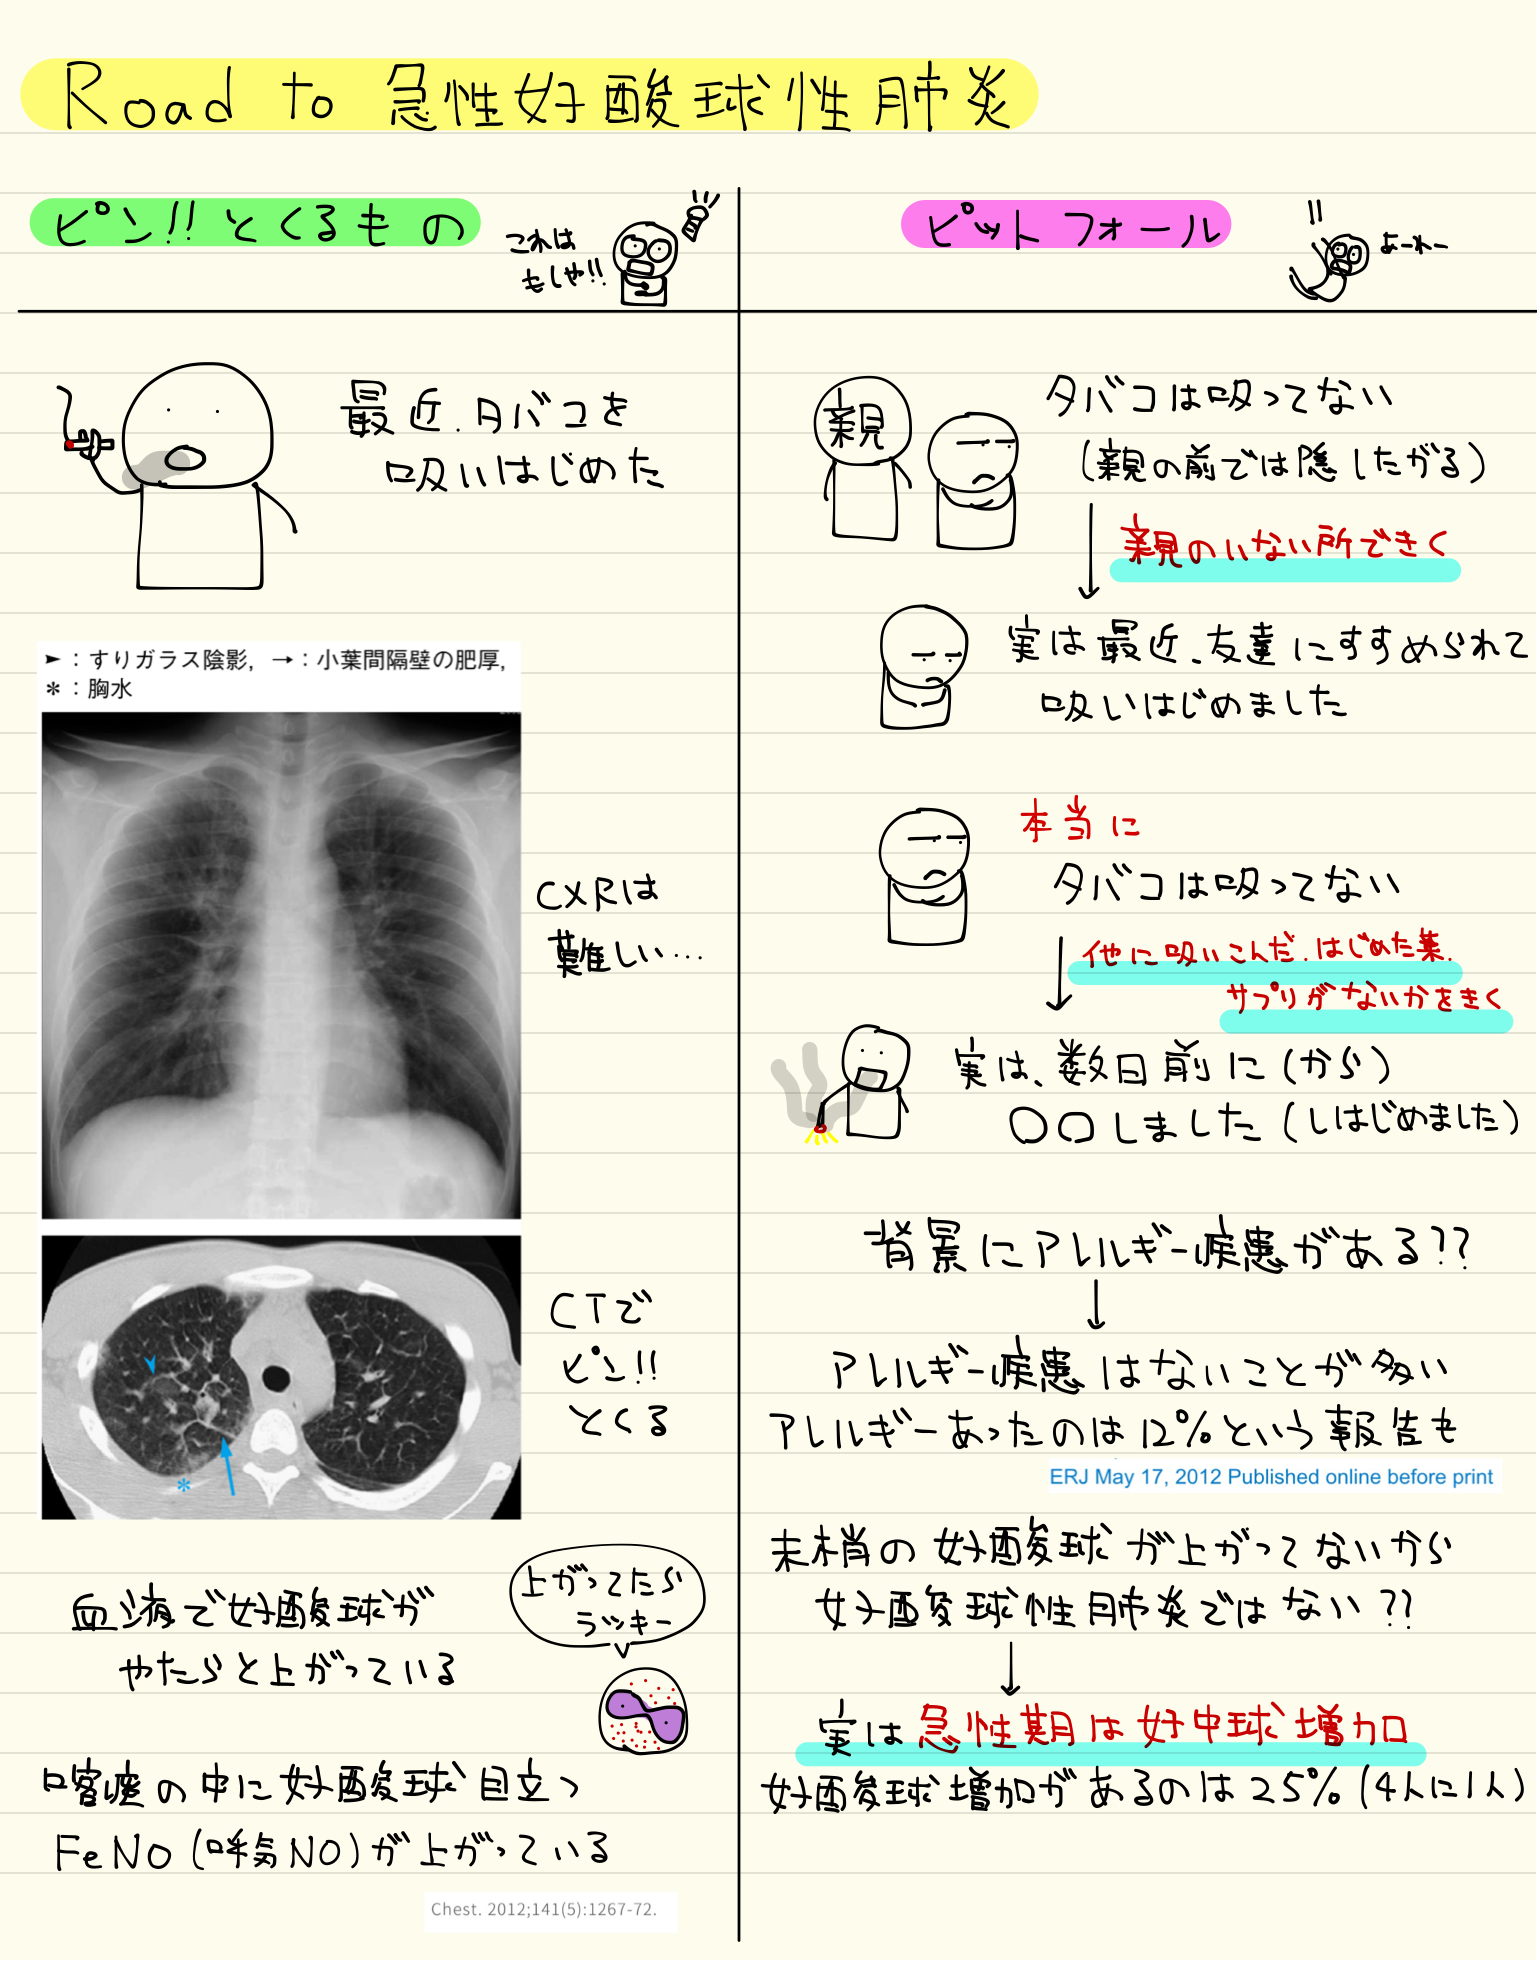 Road to 急性好酸球性肺炎
ピン!! とくるもの
これは
もしや!!
最近、タバコを
吸いはじめた
➤：すりガラス陰影，→：小葉間隔壁の肥厚，
＊：胸水
CXRは
難しい…
CTで
ピン!!
とくる
＊
血液で好酸球が
やたらと上がっている
上がってたら
ラッキー
喀痰の中に好酸球目立つ
FeNO（呼気NO）が上がっている
Chest. 2012;141(5):1267-72.
ピットフォール
!!
あーれー
親
タバコは吸ってない
（親の前では隠したがる）
親のいない所できく
実は最近、友達にすすめられて
吸いはじめました
本当に
タバコは吸ってない
他に吸いこんだ、はじめた薬、
サプリがないかをきく
実は、数日前に（から）
〇〇しました（しはじめました）
背景にアレルギー疾患がある??
アレルギー疾患はないことが多い
アレルギーあったのは12%という報告も
ERJ May 17, 2012 Published online before print
末梢の好酸球が上がってないから
好酸球性肺炎ではない??
実は急性期は好中球増加
好酸球増加があるのは25%（4人に1人）